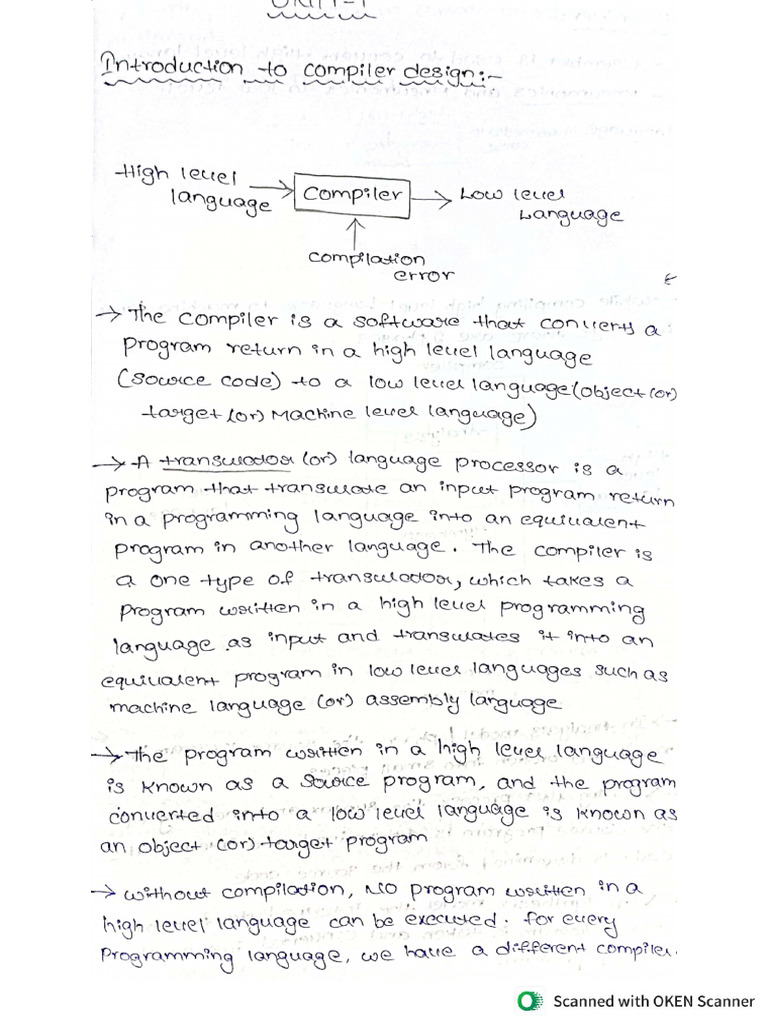 UNIT-1
Introduction to compiler design:-
High level
language
Compiler
Low level
Language
compilation
error
→ The compiler is a software that converts a
program return in a high level language
(source code) to a low level language (object (or)
target (or) Machine level language)
→ A translator (or) language processor is a
program that translate an input program return
in a programming language into an equivalent
program in another language. The compiler is
a one type of translator, which takes a
program written in a high level programming
language as input and translates it into an
equivalent program in low level languages such as
machine language (or) assembly language
→ The program written in a high level language
is known as a source program, and the program
converted into a low level language is known as
an object (or) target program
→ without compilation, No program written in a
high level language can be executed. for every
Programming language, we have a different compiler.
Scanned with OKEN Scanner